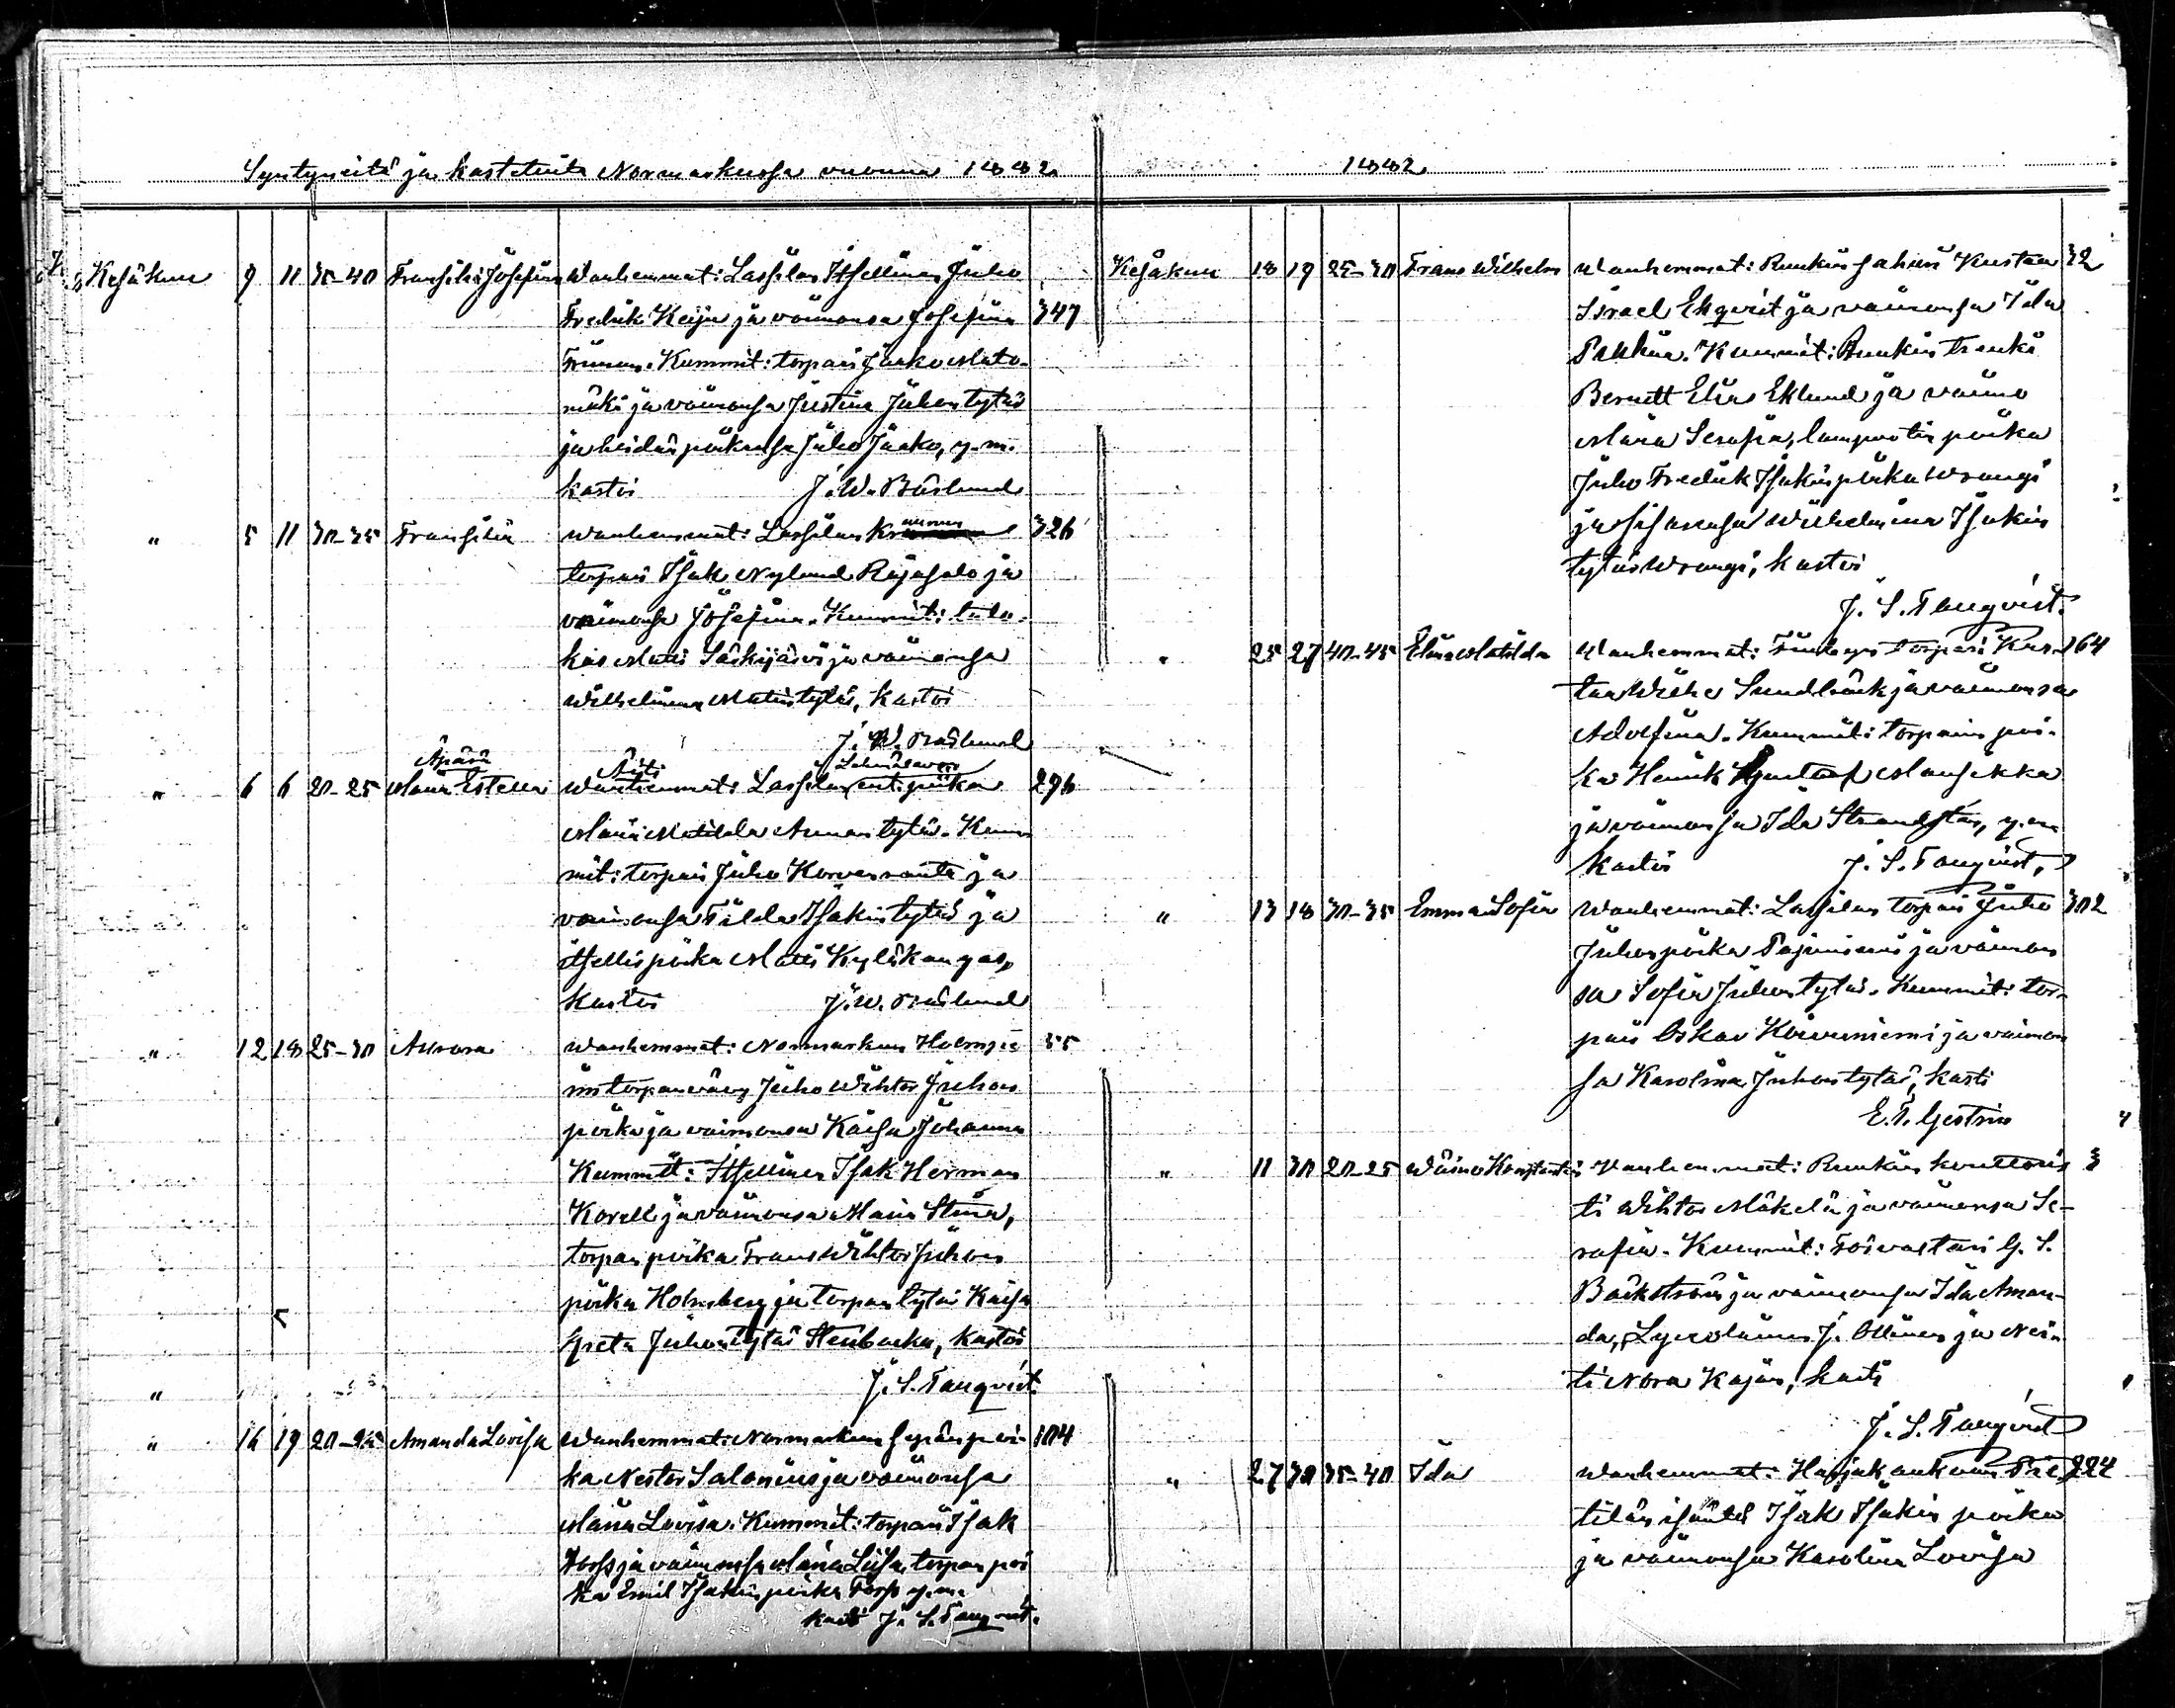 Syntyneitä ja kastetuita Normarkussa vuonna 1882
Kesäkuu 9 11 35-40 Fransilia Josefina Wanhemmat: Lassilan Itsellinen Juho 347
Fredrik Keiju ja vaimonsa Josefina
Kummit: torpari Jaako Mato-
mäki ja vaimonsa Justina Juhontytär
ja heidän poikansa Juho Jaako, y.m.
kastoi J. W. Båslund
" 5 11 30-35 Fransilia Wanhemmat: Lassilan kruunun 326
torpari Isak Nylund Rajasalo ja
vaimonsa Josefina. Kummit: talo-
kas Matti Särkijärvi ja vaimonsa
Wilhelmina Matintytär, kastoi
J. W. Båslund
Äpärä
" 6 6 20-25 Maria Estella Äiti Lassilan entispiika 296
Maria Matilda Annantytär. Kum-
mit: torpari Juho Korvenranta ja
vaimonsa Tilda Isakintytär ja
itsellispoika Matti Kyläkangas,
kastoi J. W. Båslund
" 12 18 25-30 Aurora Wanhemmat: Normarkun 55
torpanvävy Juho Wihtor Juhan
poika ja vaimonsa Kaisa Johanna
Kummit: Itsellinen Isak Herman
Korell ja vaimonsa Maria Stina,
torpan poika Frans Wihtor Juhan
poika Holmberg ja torpan tytär Kaisa
Greta Juhontytär Stenbacka, kastoi
J. S. Tanqvist
" 16 19 20-25 Amanda Lovisa Wanhemmat: Normarkun sepän poi- 104
ka Nestor Salonius ja vaimonsa
Maria Lovisa. Kummit: torpari Isak
ja vaimonsa Maria Liisa, torpan poi
ka Emil Isakin poika Torp y.m.
kasti J. S. Tanqvist.
1882
Kesäkuu 18 19 25-30 Frans Wilhelm Wanhemmat: Ruukin sahuri Kustaa 32
Israel Ekqvist ja vaimonsa Ida
Kummit: Ruukin trenki
Bernett Elias Eklund ja vaimo
Maria Serafia, lampuotin poika
Juho Fredrik Isakinpoika Wrangi
ja sisarensa Wilhelmina Isakin
tytär Wrangi, kastoi
J. S. Tanqvist.
" 25 27 40-45 Elina Matilda Wanhemmat: torpari Kus- 164
taa Wilhe Sundbäck ja vaimonsa
Adolfina. Kummit: torparin poi-
ka Henrik Gustaf Mansikka
ja vaimonsa Ida Strandsten, y.m.
kastoi J. S. Tanqvist,
" 13 18 30-35 Emma Sofia Wanhemmat: Lassilan torpari Juho 302
Juhanpoika Pajuniemi ja vaimon
sa Sofia Juhontytär. Kummit: tor-
pari Oskar Koivuniemi ja vaimon
sa Karolina Juhontytär, kasti
E. T. Gestrin
" 11 30 20-25 Wäinö Konstantin Wanhemmat: Ruukin konttoris 3
ti Wihtor Mäkelä ja vaimonsa Se-
rafia. Kummit: G. S.
Bäckström ja vaimonsa Ida Aman-
da, J. Ollinen ja Nei-
ti Nora Kajan, kasti
J. S. Tanqvist
" 27 30 35-40 Ida Wanhemmat: Harjakankaan Prie 224
tilän isäntä Isak Isakin poika
ja vaimonsa Karolina Lovisa